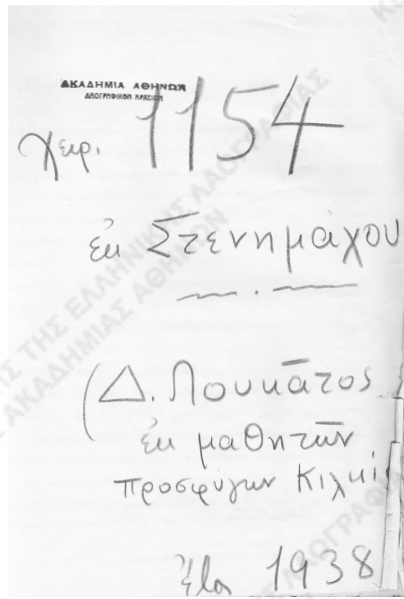 ΑΚΑΔΗΜΙΑ ΑΘΗΝΩΝ
ΛΑΟΓΡΑΦΙΚΟΝ ΑΡΧΕΙΟΝ
Χειρ. 1154
ἐκ Στενημάχου
(Δ. Λουκᾶτος
ἐκ μαθητῶν
προσφύγων Κιλκί
Ἔτος 1938
ΤΗΣ ΕΛΛΗΝΙΚΗΣ ΛΑΟΓΡΑΦΙΑΣ
ΑΚΑΔΗΜΙΑΣ ΑΘΗΝΩΝ